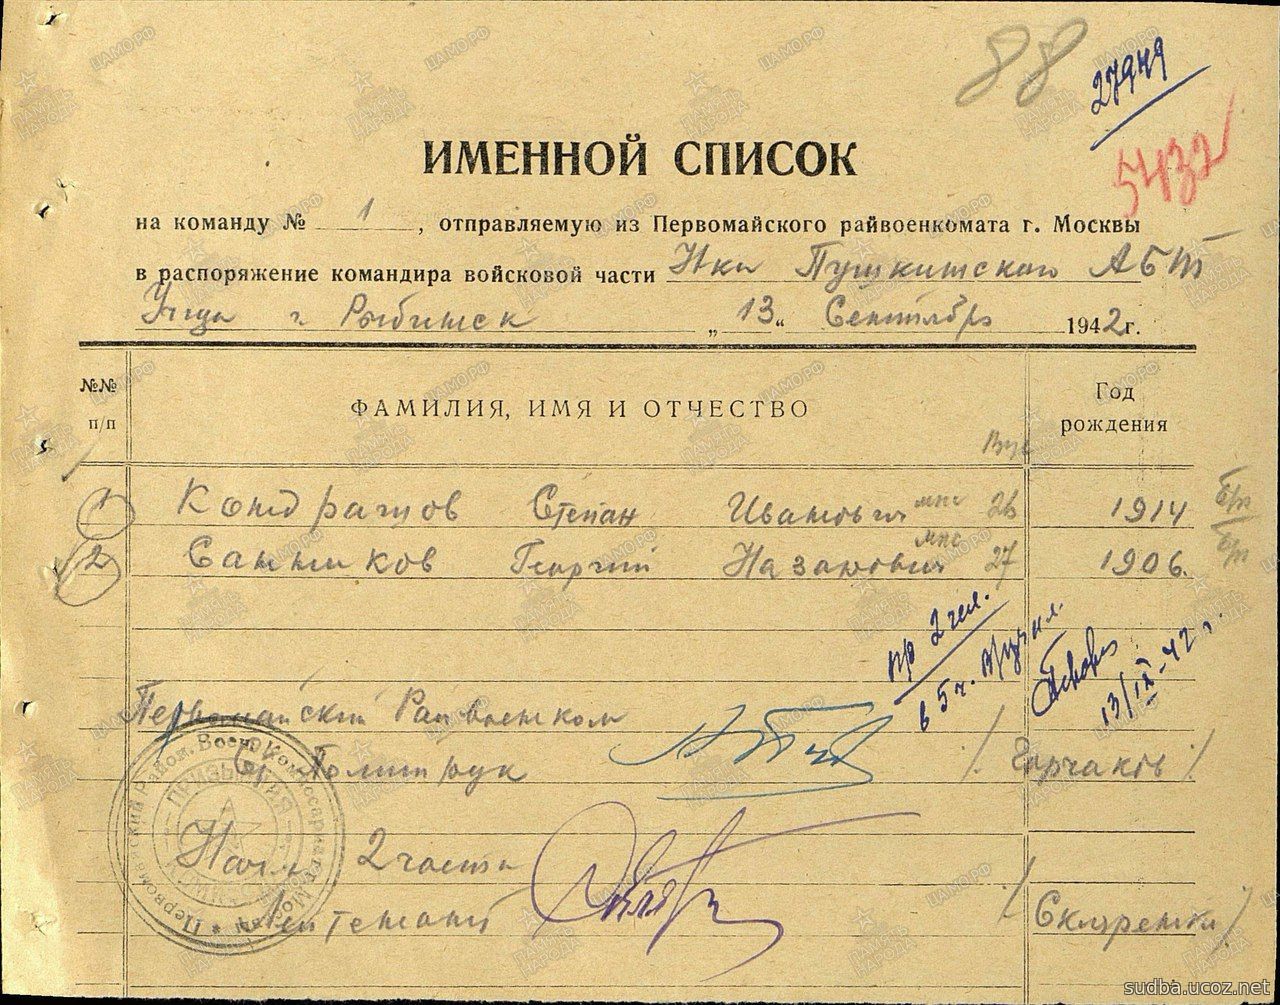 88
27979
5432
ИМЕННОЙ СПИСОК
на команду № 1, отправляемую из Первомайского райвоенкомата г. Москвы
в распоряжение командира войсковой части Нка Пушкинского АБТ
Уч-ща г. Рыбинск „13“ Сентября 1942 г.
№№ п/п ФАМИЛИЯ, ИМЯ И ОТЧЕСТВО Год рождения
Вус
1 Кондрашов Степан Иванович мпс 26 1914 б/п
2 Санников Георгий Назарович мпс 27 1906. б/п
пр 2 чел.
в 5 ч.
13/IX-42 г.
Первомайский Райвоенком
Ст. Политрук /Горчаков/
Нач. 2 части
Лейтенант /Скляренко/
Первомайский Район. Воен. Комиссариат г. Москвы
ПАМЯТЬ НАРОДА
ЦАМО.РФ
sudba.ucoz.net